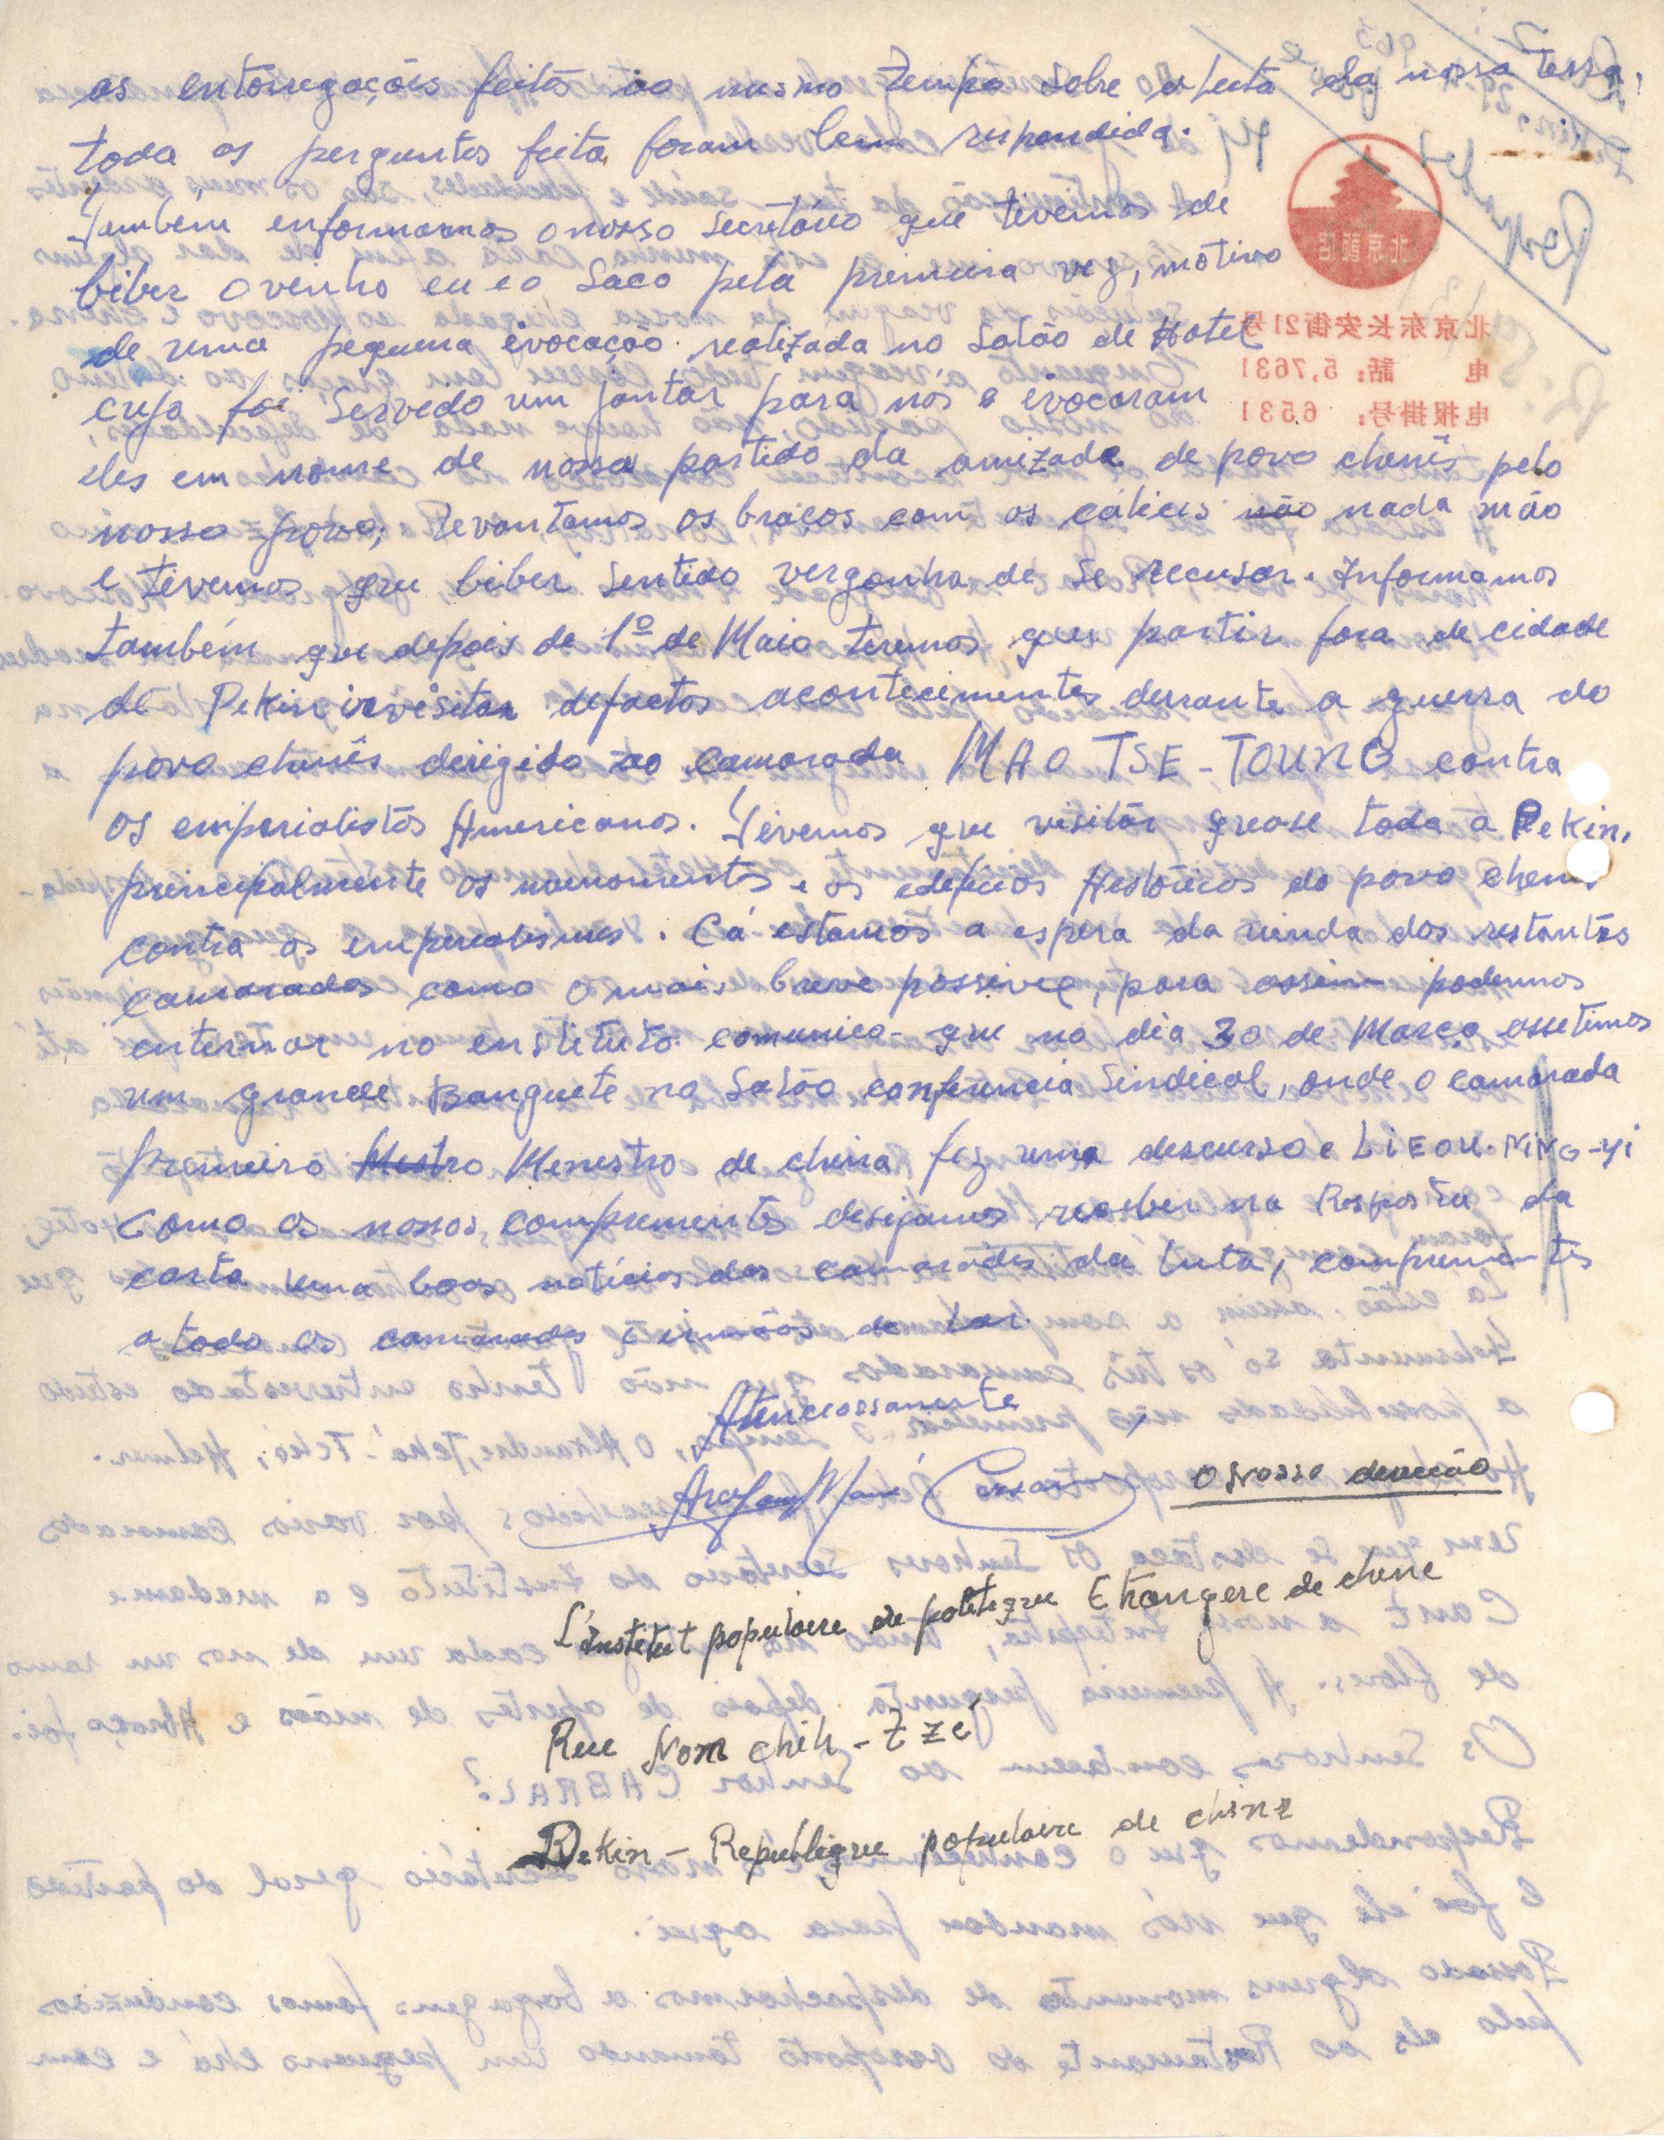 as entorregaçóis feitos ao mesmo tempo sobre a luta da nossa terra,
toda as perguntas feita foram bem respondida.
Também enformarmos o nosso Secretário que tivemos de
biber o vinho eu e o Saco pela primeira vez, motivo
de uma pequena evocação realizada no Salão de Hotel
cujo foi Servedo um jantar para nós e evocaram
eles em nome de nossa partido da amizade de povo chenês pelo
nosso povo; levantamos os braços com os cálicis não nada mão
e tevemos que biber sentido vergonha de se recusar. Informamos
também que depois de 1º de Maio teremos que partir fora de cidade
de Pekin ir visitar defactos acontecimentos derrante a guerra do
povo chenês derigido ao camarada MAO TSE-TOUNG contra
os emperialistas Americanos. Tivemos que visitar quase toda a Pekin,
principalmente os monomentos e os edefícios Históricos do povo chenês
contra os emperealismes. Cá estamos a espera da vinda dos restantes
camaradas como o mais breve possivel, para assim podermos
enternar no enstituto. comunico-que no dia 30 de Março assetimos
um grande Banquete no Salão conferencia Sindical, onde o camarada
premeiro Mestro Menestro de china fez uma descurso e LIEOU-NING-YI
Como os nossos comprementos desejamos receber na Resposta da
carta uma boas notícias dos camarades da luta, comprementes
a todo os camarades e irmãos de Lar.
Atenciossamente
O Nosso dereção
L'Institut populaire de politique Etrangere de chine
Rue Nom chih-tzé
Pekin - Republique populaire de chine
北京东长安街21号
电 話: 5,7631
电报掛号: 6531
北京飯店